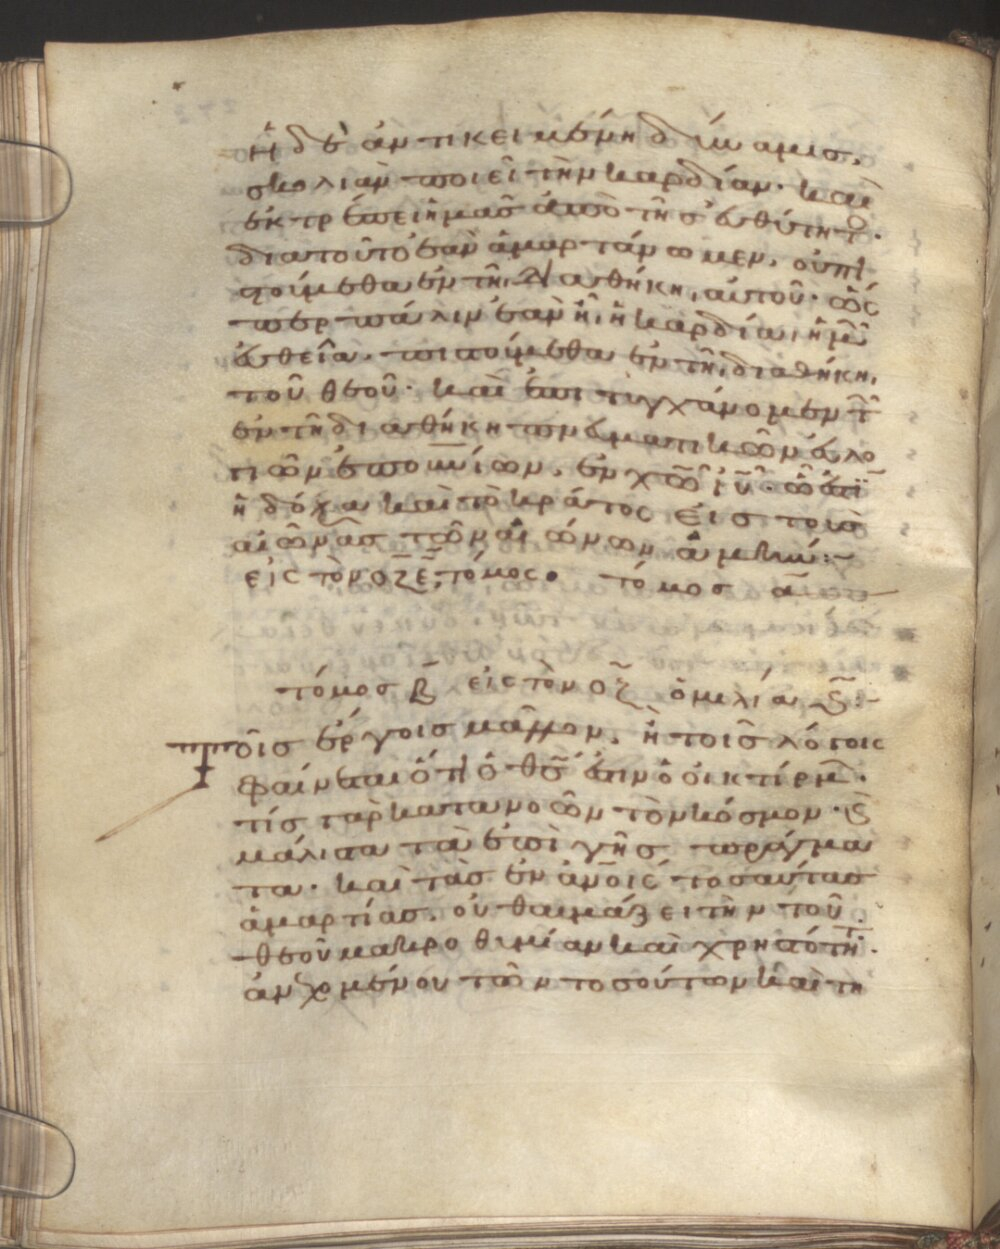 ἡ δὲ ἀντικειμένη δύναμις,
σκολιὰν ποιεῖ τὴν καρδίαν· καὶ
ἐκτρέπει ἡμᾶς ἀπὸ τῆς εὐθύτητ·
διατοῦτο ἐὰν ἁμαρτάνωμεν, οὐ πι
στούμεθα ἐν τῇ διαθήκῃ, αὐτοῦ· ὥς
περ πάλιν ἐὰν ᾖ, ἡ καρδία, ἡμῶν
εὐθεῖα, πιστούμεθα ἐν τῇ, διαθήκῃ,
τοῦ θεοῦ· καὶ ἐπιτυγχάνομεν τῶν
ἐν τῇ διαθήκῃ πνευματικῶν εὐλο
γιῶν ἐπουνίων, ἐν χῶ ἰῦ· ὧ ἐστὶν
ἡ δόξα καὶ τὸ κράτος εἰς τοὺς
αἰῶνας τῶν αἰώνων ἀμήν:~
εἰς τὸν οζ, τόμος. τόμος α
τόμος β εἰς τὸν οζ ὁμιλία ϛ:~
Τοῖς ἔργοις μᾶλλον, ἢ τοῖς λόγοις
φαίνεται ὅτι ὁ θς ἐστιν ὁ οἰκτίρμ·
τίς γὰρ κατανοῶν τὸν κόσμον· καὶ
μάλιστα τὰ ἐπὶ γῆς πράγμα
τα· καὶ τὰς ἐν ἀνοις τοσαύτας
ἁμαρτίας, οὐ θαυμάζει τὴν τοῦ
θεοῦ μακροθυμίαν καὶ χρηστότητ·
ἀνεχομένου τῶν τοσούτων καὶ τη